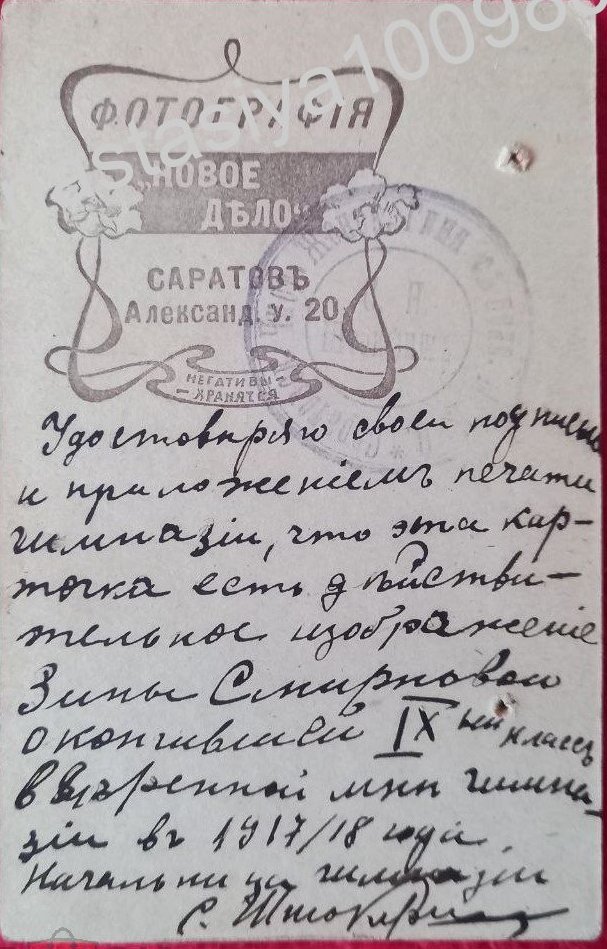 stasiya10098
ФОТОГРАФІЯ
„НОВОЕ
ДѢЛО“
САРАТОВЪ
Александ. у. 20
НЕГАТИВЫ
ХРАНЯТСЯ
Удостовѣряю своей подписью
и приложеніемъ печати
гимназіи, что эта кар-
точка есть дѣйстви-
тельное изображеніе
Зины Смирновой
окончившей IX ый классъ
ввѣренной мнѣ гимна-
зіи въ 1917/18 году.
Начальница гимназіи
С.